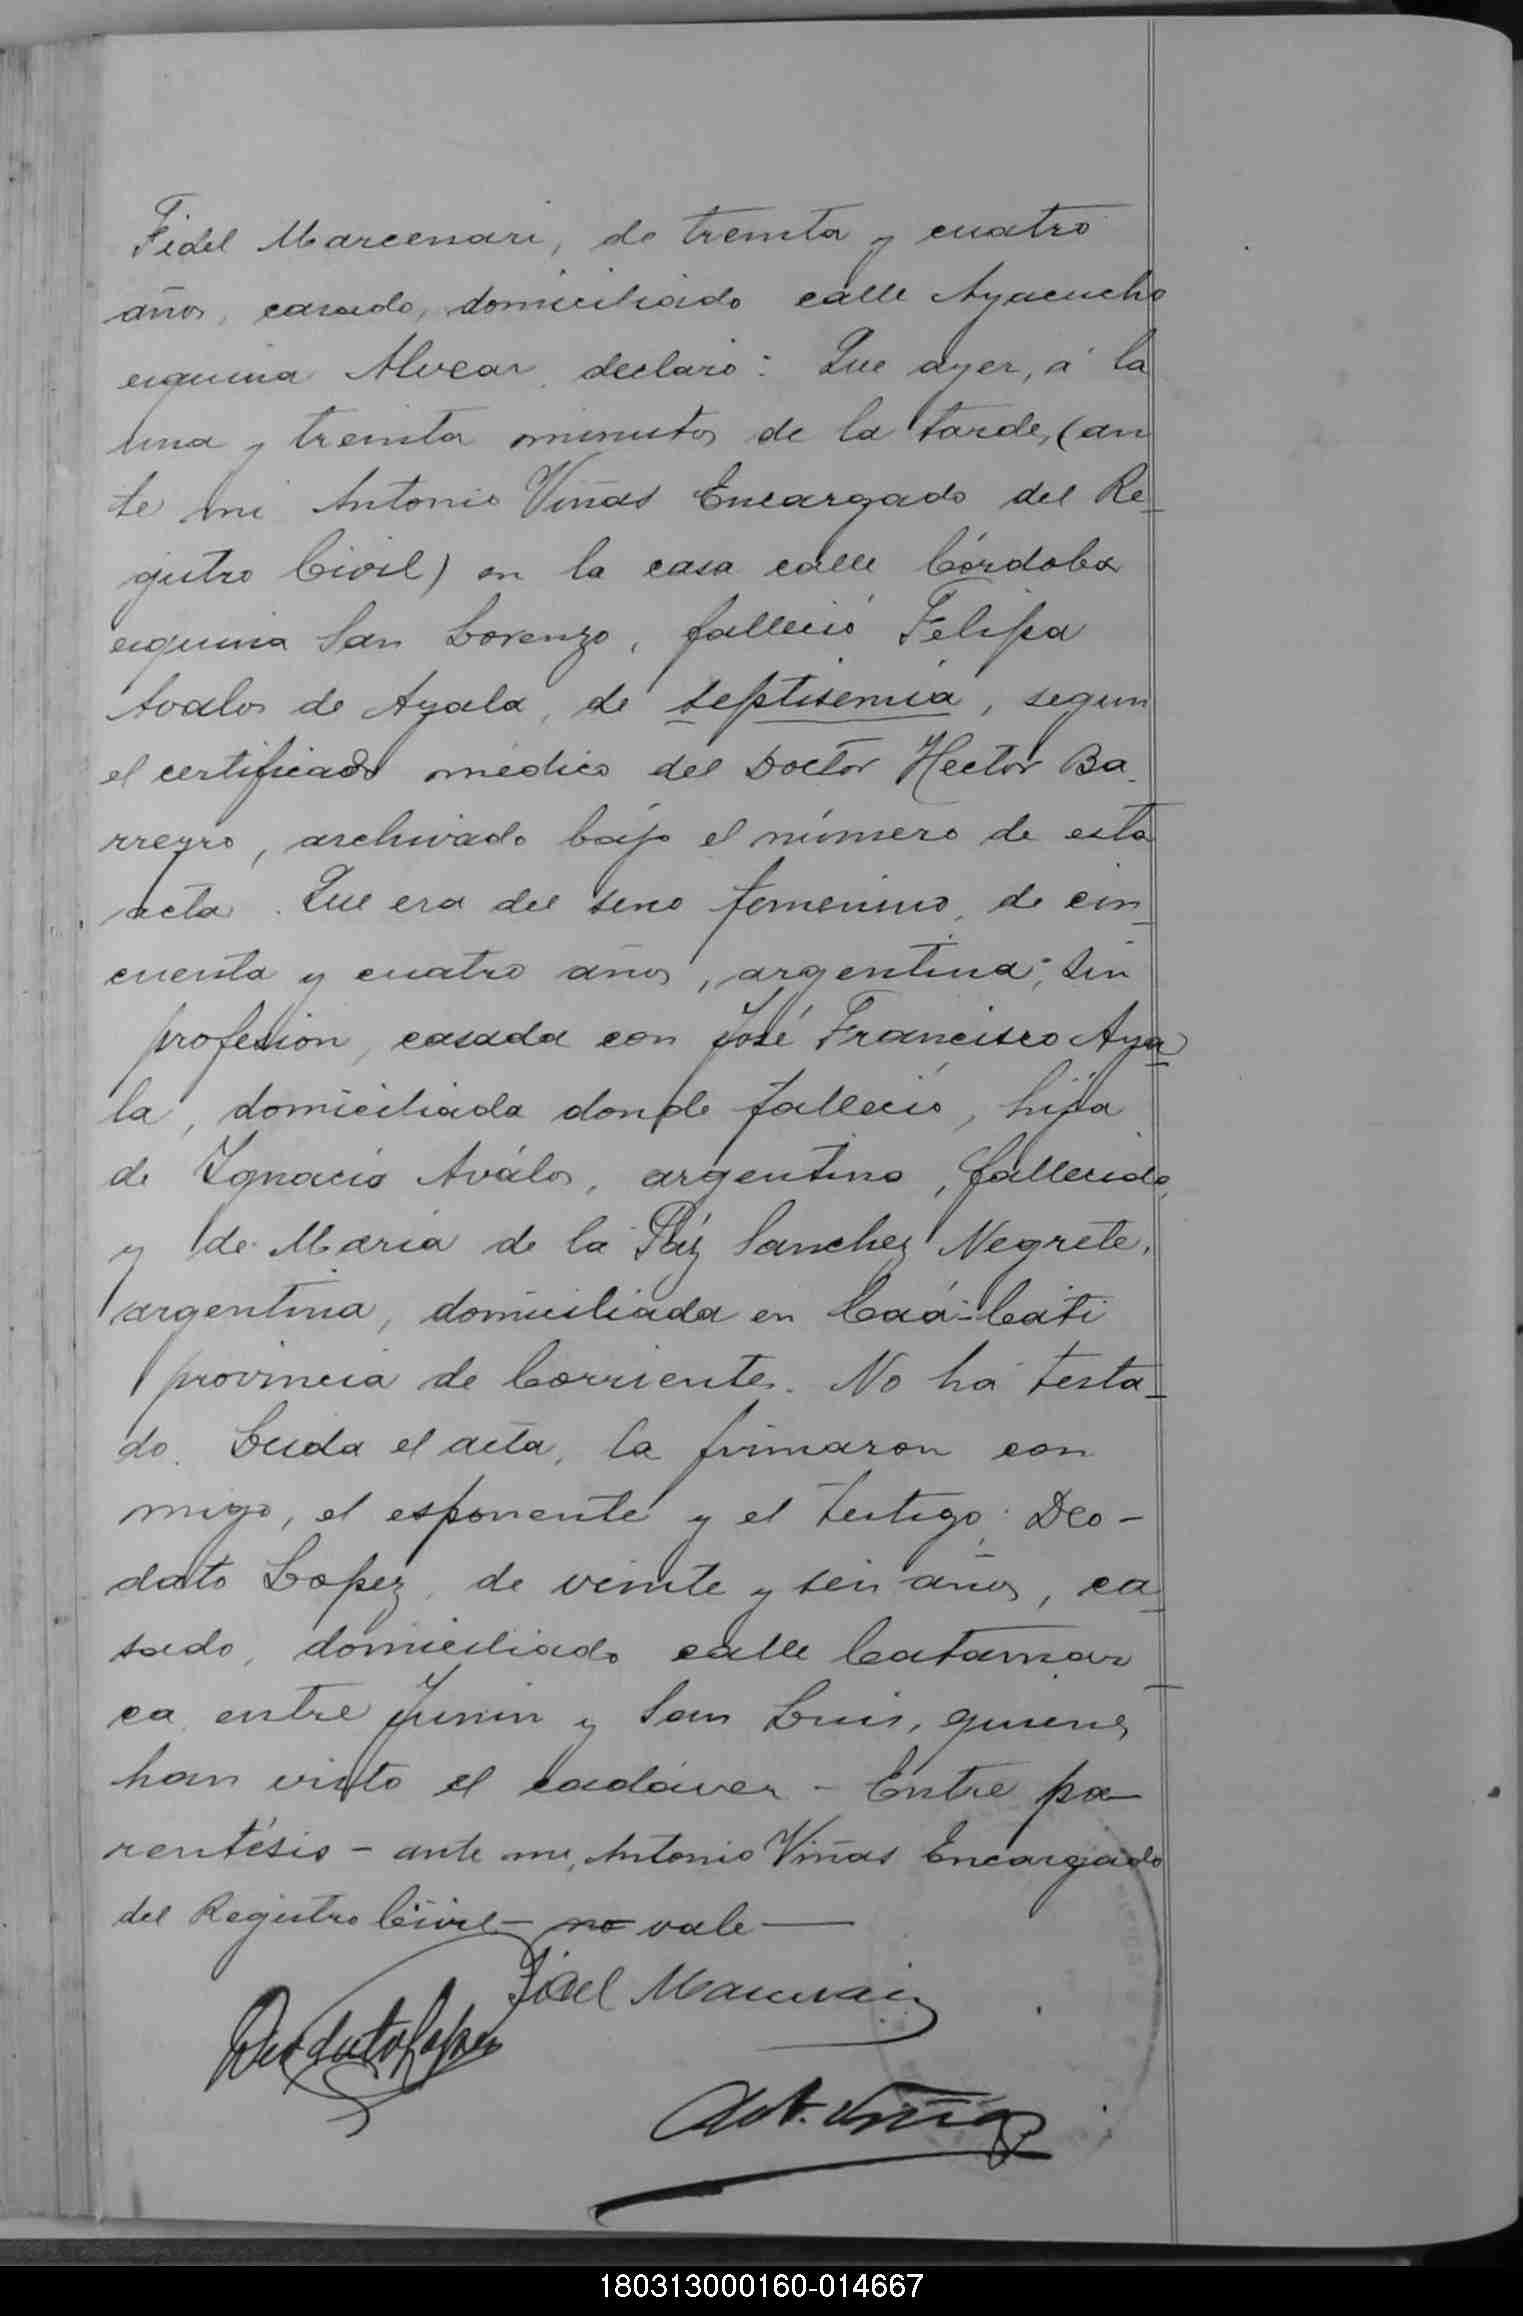 Fidel Marcenari, de treinta y cuatro
años, casado, domiciliado calle Ayacucho
esquina Alvear, declaró: Que ayer, á la
una y treinta minutos de la tarde, (an
te mi Antonio Viñas Encargado del Re-
gistro Civil) en la casa calle Córdoba
esquina San Lorenzo, falleció Felipa
Avalos de Ayala, de septisemia, segun
el certificado médico del Doctor Hector Ba-
rreyro, archivado bajo el número de esta
acta. Que era del sexo femenino, de cin-
cuenta y cuatro años, argentina, sin
profesion, casada con José Francisco Aya-
la, domiciliada donde falleció, hija
de Ygnacio Aválos, argentino, fallecido,
y de Maria de la Páz Sanchez Negrete,
argentina, domiciliada en Caá-Cati
provincia de Corrientes. No ha testa-
do. Leida el acta, la firmaron con
migo, el esponente y el testigo: Deo-
dato Lopez, de veinte y seis años, ca-
sado, domiciliado calle Catamar-
ca entre Junin y San Luis, quienes
han visto el cadáver - Entre pa-
rentésis - ante mi, Antonio Viñas Encargado
del Registro Civil - no vale
Fidel Marcenari
Deodato Lopez
Ant. Viñas
180313000160-014667